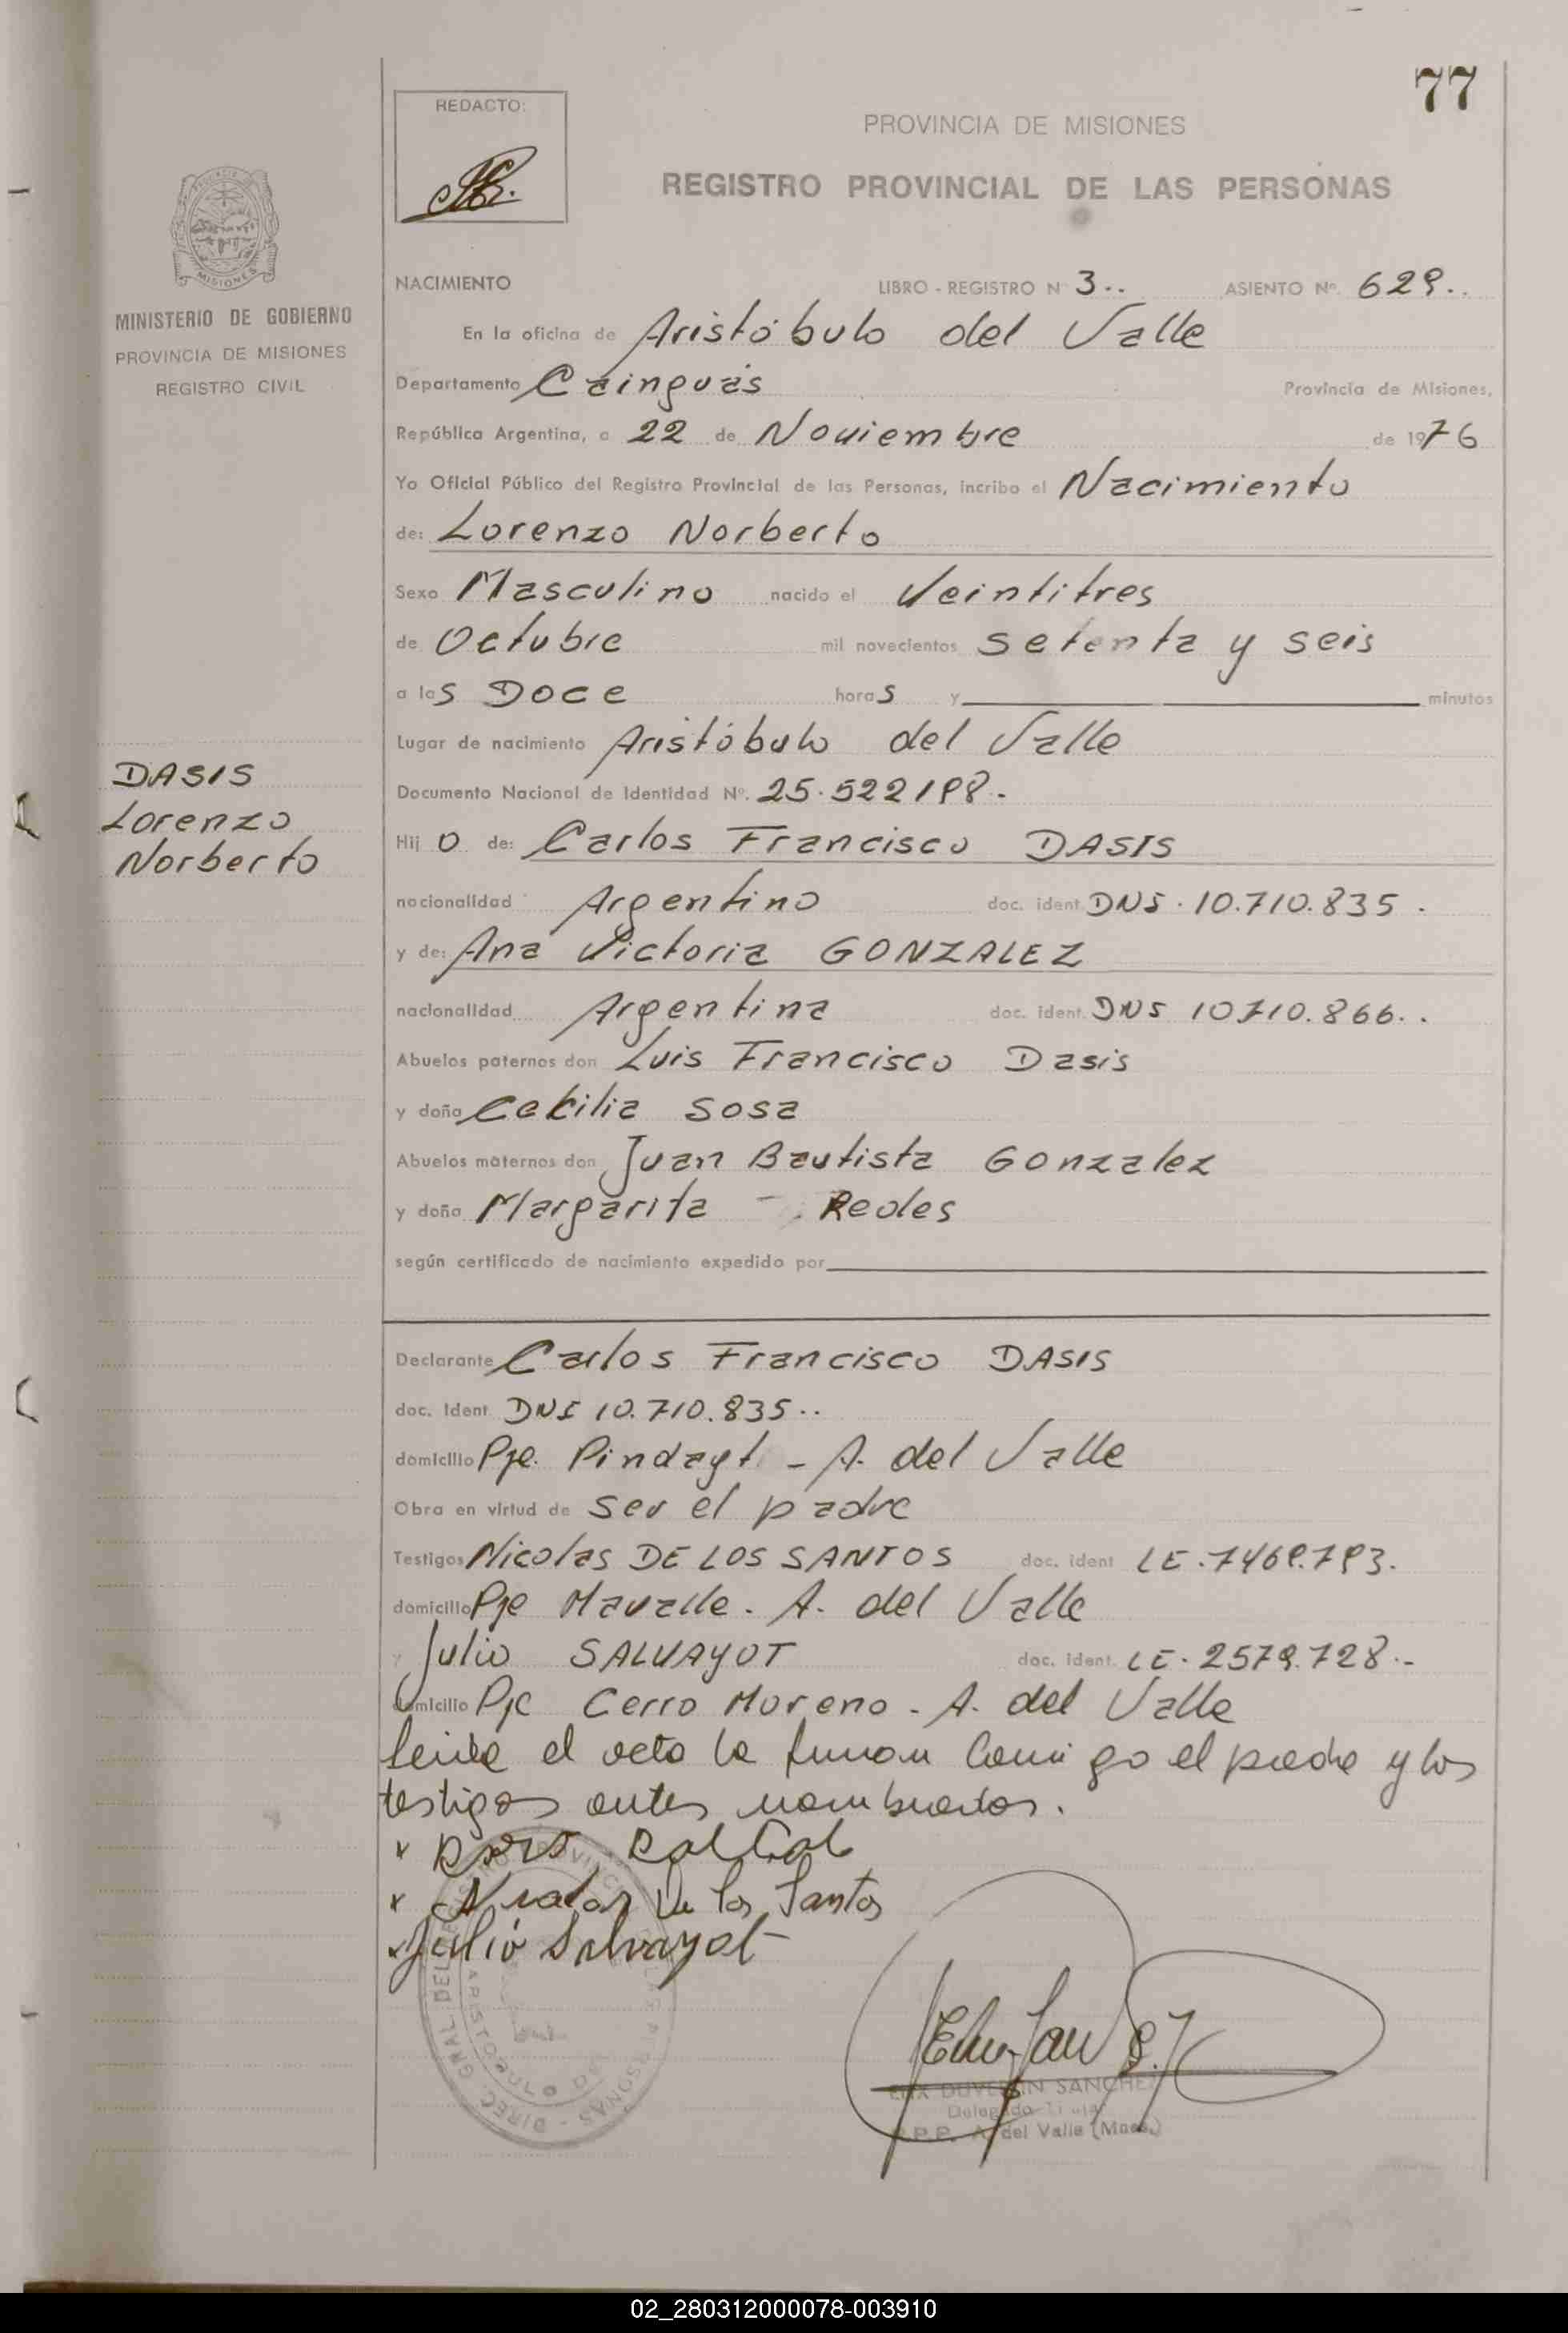 77
REDACTO:
PROVINCIA DE MISIONES
REGISTRO PROVINCIAL DE LAS PERSONAS
MISIONES
MINISTERIO DE GOBIERNO
PROVINCIA DE MISIONES
REGISTRO CIVIL
NACIMIENTO LIBRO - REGISTRO N 3.. ASIENTO Nº. 629..
En la oficina de Aristóbulo del Valle
Departamento Cainguás Provincia de Misiones,
República Argentina, a 22 de Noviembre de 1976
Yo Oficial Público del Registro Provincial de las Personas, incribo el Nacimiento
de: Lorenzo Norberto
Sexo Masculino nacido el Veintitres
de Octubre mil novecientos setenta y seis
a las Doce horas y minutos
Lugar de nacimiento Aristóbulo del Valle
DASIS
Lorenzo
Norberto
Documento Nacional de Identidad Nº. 25.522198.
Hijo de: Carlos Francisco DASIS
nacionalidad Argentino doc. ident. DNI. 10.710.835.
y de: Ana Victoria GONZALEZ
nacionalidad Argentina doc. ident. DNI 10710.866..
Abuelos paternos don Luis Francisco Dasis
y doña Cecilia Sosa
Abuelos maternos don Juan Bautista Gonzalez
y doña Margarita - Redes
según certificado de nacimiento expedido por
Declarante Carlos Francisco DASIS
doc. Ident. DNI 10.710.835..
domicilio Pje. Pindayt - A. del Valle
Obra en virtud de ser el padre
Testigos Nicolas DE LOS SANTOS doc. ident LE.7469.793.
domicilio Pje Mavalle. A. del Valle
y Julio SALVAYOT doc. ident. LE. 2579.728.-
domicilio Pje Cerro Moreno - A. del Valle
leida el acta la firman conmigo el padre y los
testigos antes nombrados.
Nicolas De los Santos
Julio Salvayot
SANCHEZ
A. del Valle (Mnes.)
02_280312000078-003910